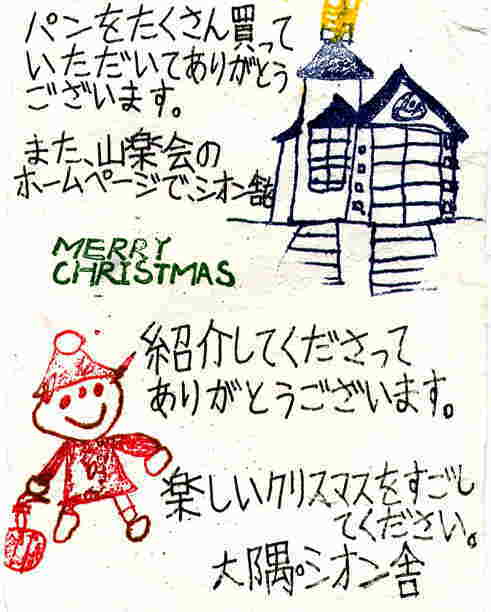 パンをたくさん買って
いただいてありがとう
ございます。
また、山楽会の
ホームページで、シオン舎
MERRY
CHRISTMAS
紹介してくださって
ありがとうございます。
楽しいクリスマスをすごし
てください。
大隅。シオン舎